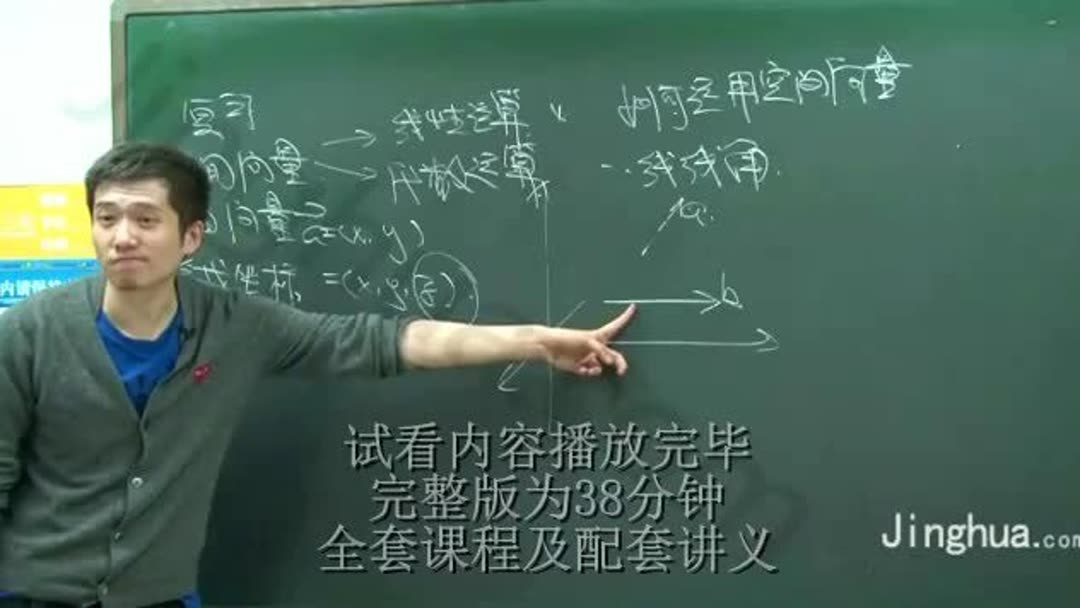 复习
如何运用空间向量
线性运算
间向量
一、线线角.
向量 a=(x, y)
a.
坐标, =(x, y, z).
b.
试看内容播放完毕
完整版为38分钟
全套课程及配套讲义
Jinghua.com